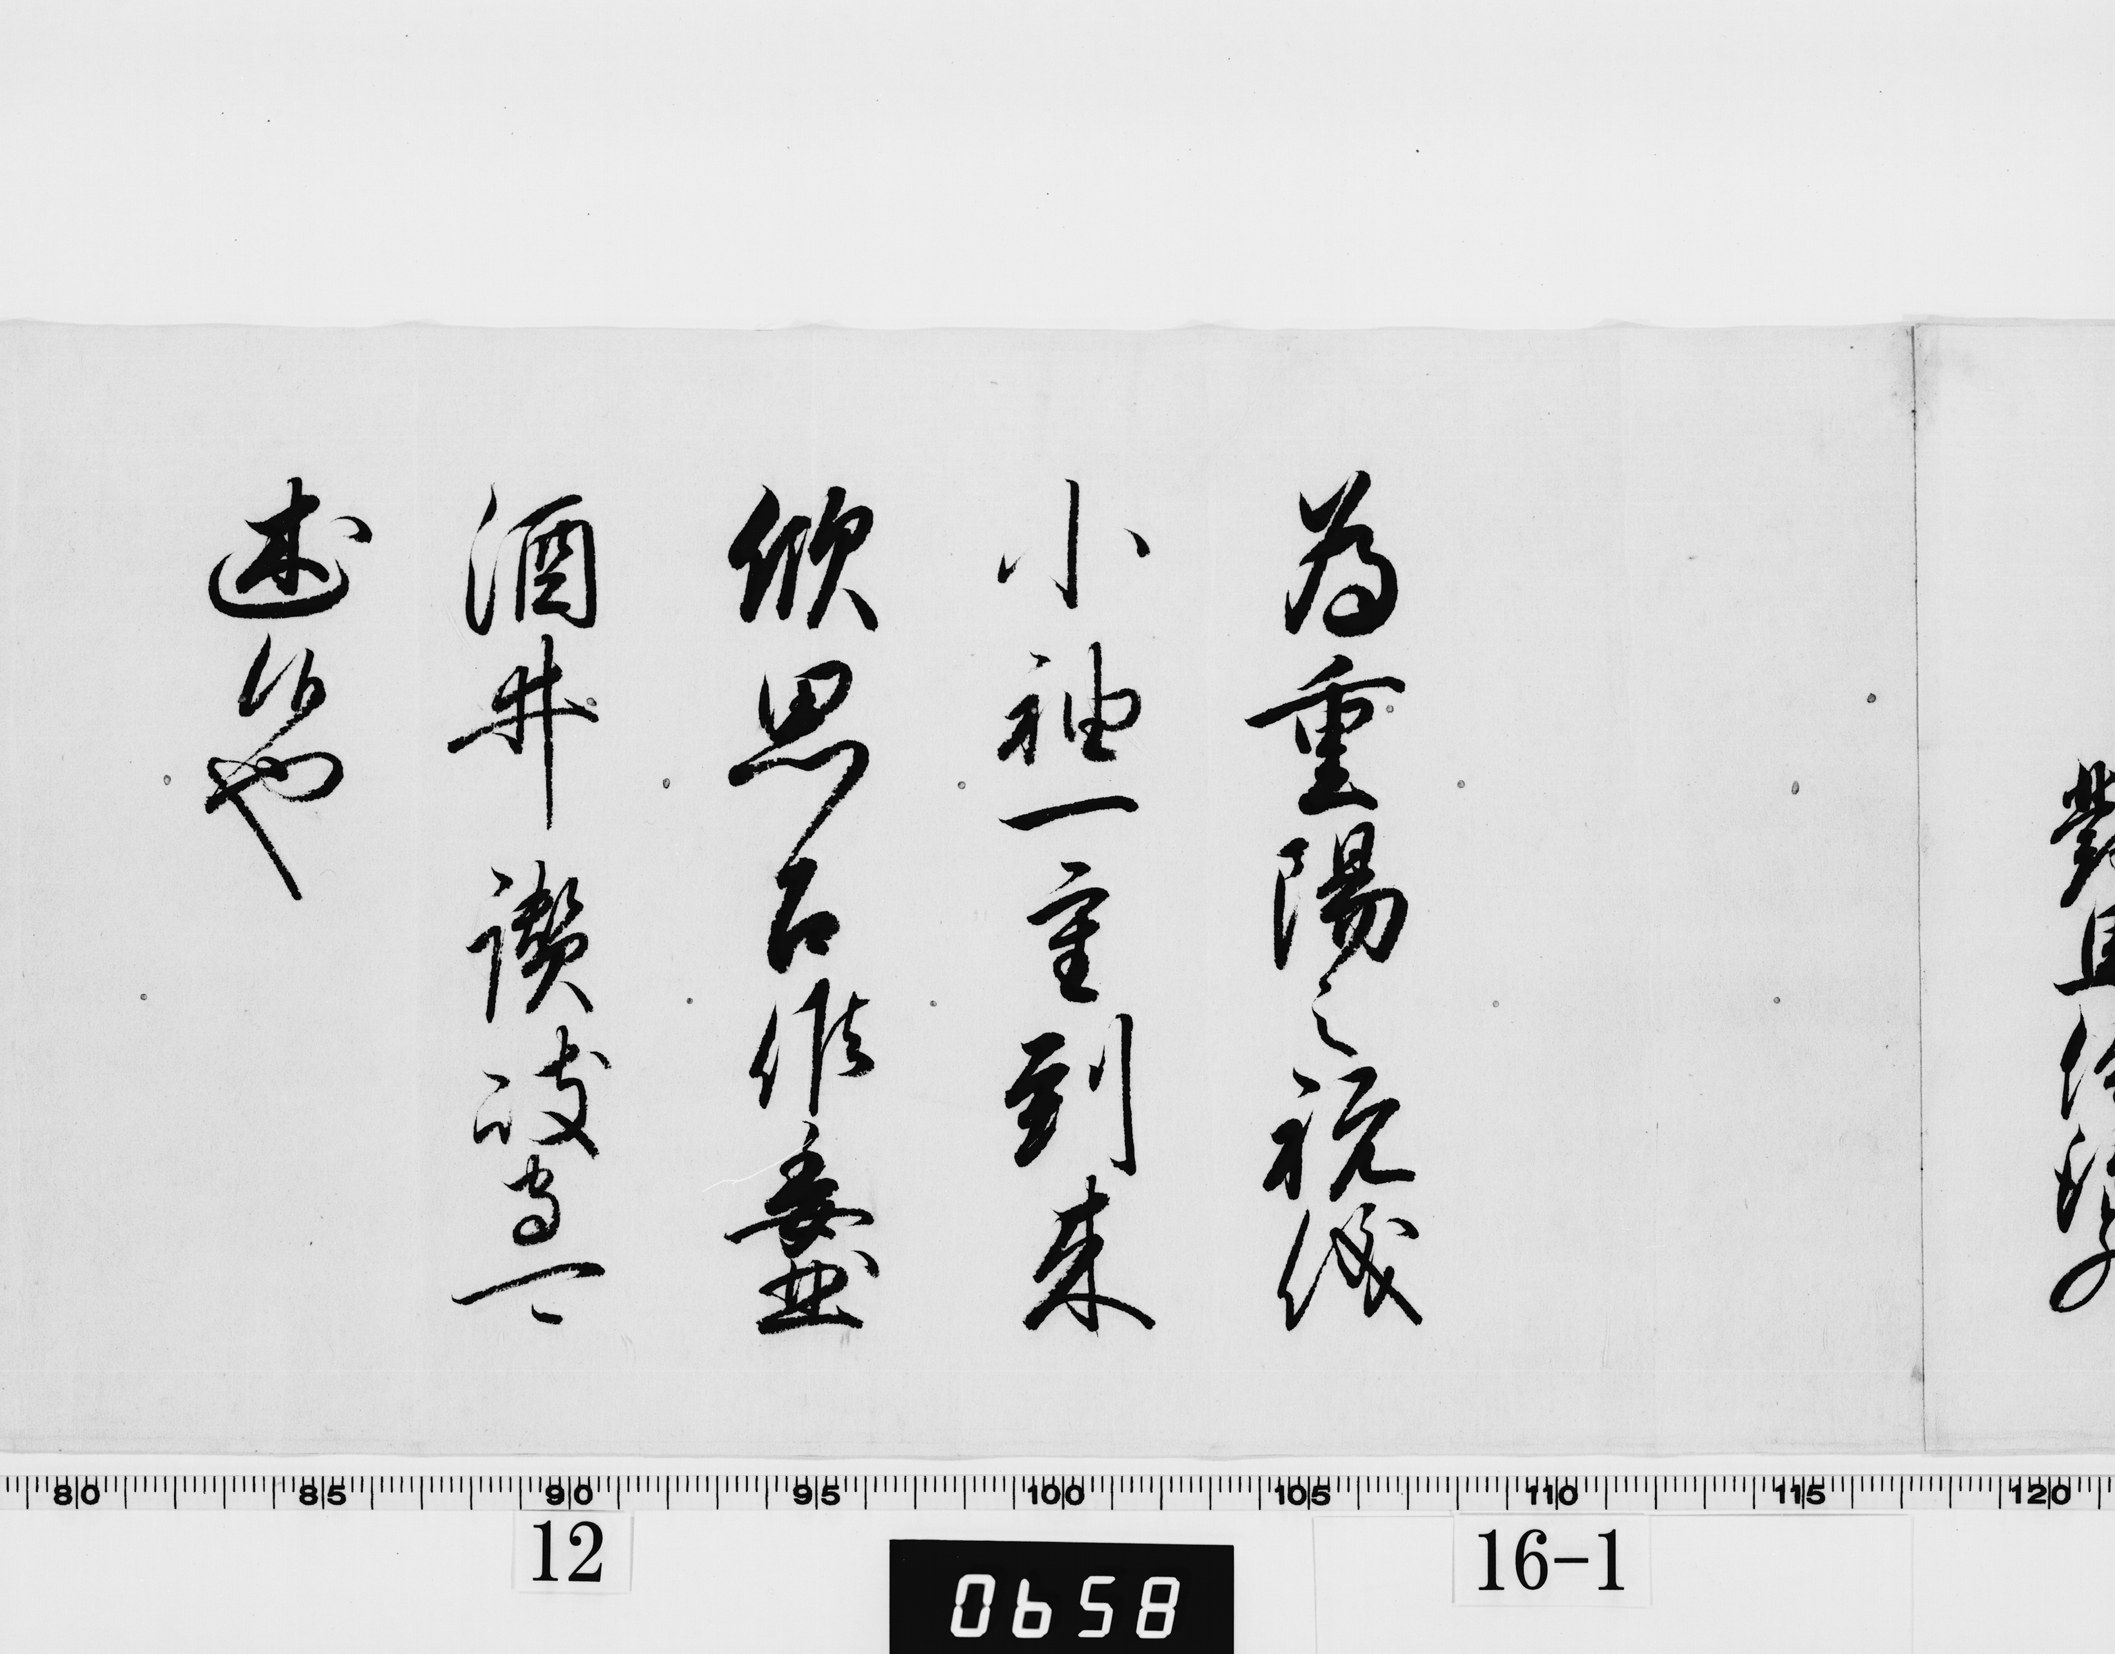 為重陽之祝儀
小袖一重到来
歓思召候委曲
酒井讃岐守可
述候也
80 85 90 95 100 105 110 115 120
12
0658
16-1